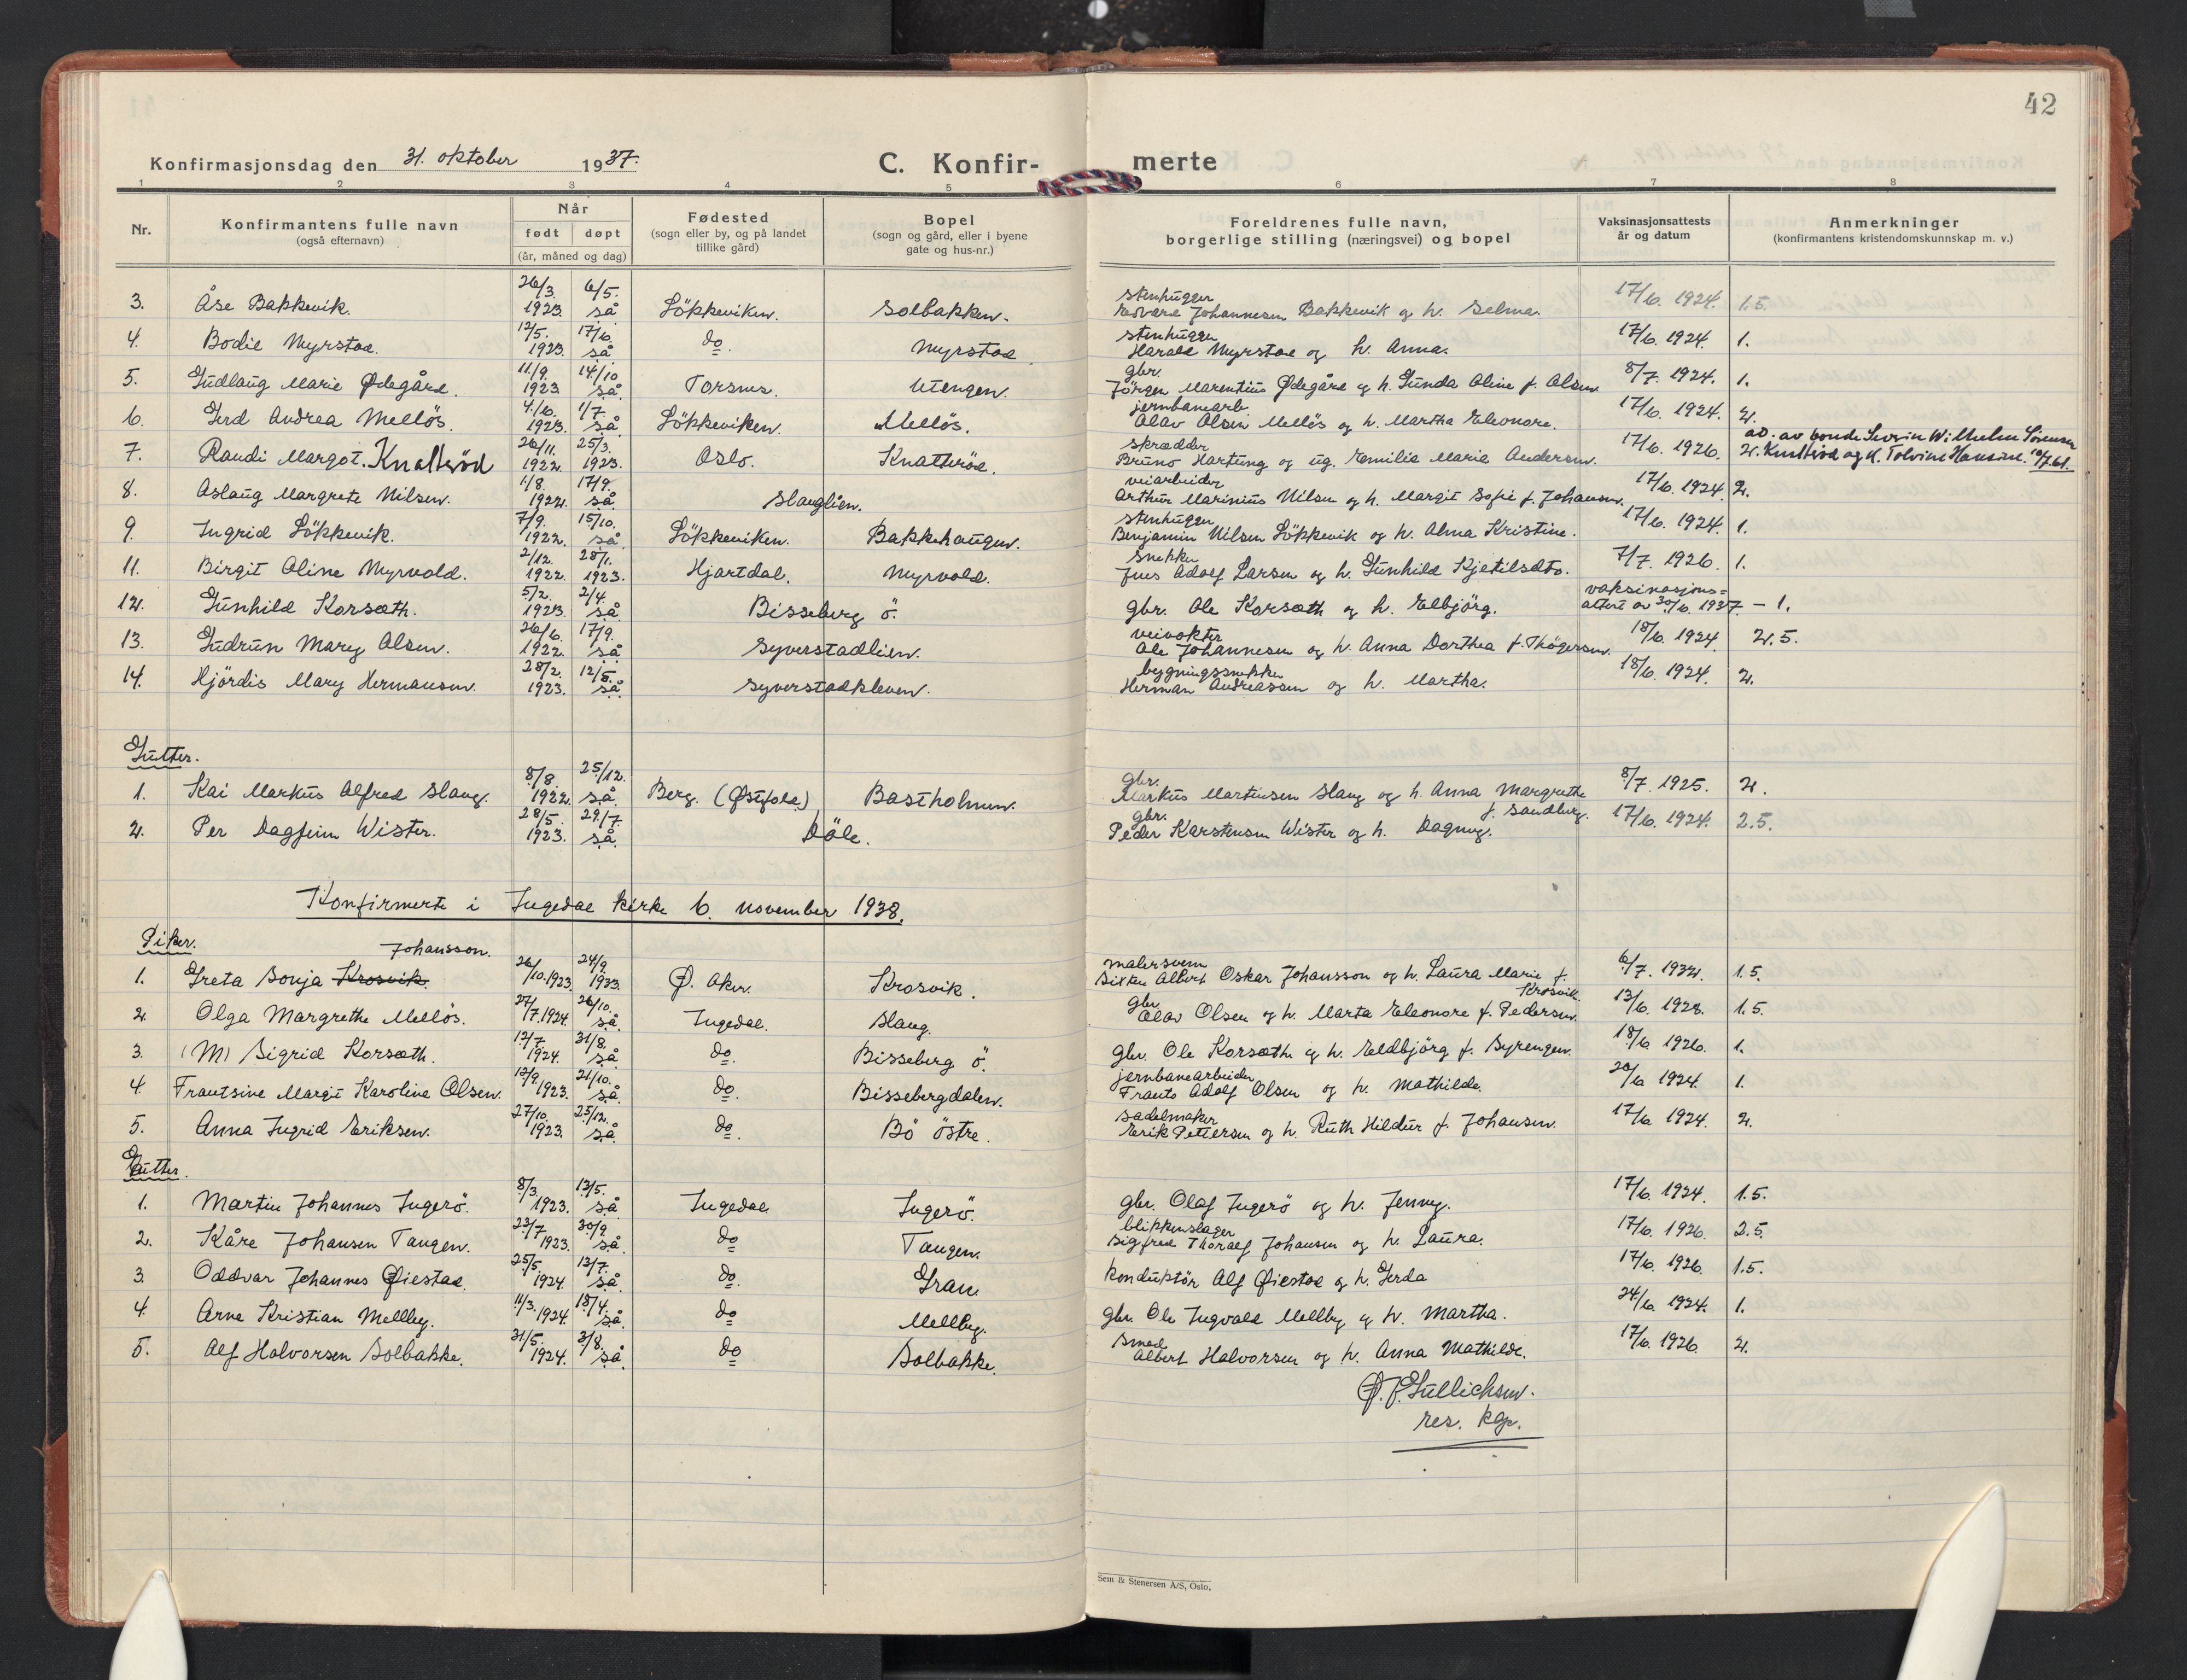 42
Konfirmasjonsdag den 31. oktober 1937.
C. Konfir- merte
1 2 3 4 5 6 7 8
Nr.
Konfirmantens fulle navn
(også efternavn)
Når
født døpt
(år, måned og dag)
Fødested
(sogn eller by, og på landet
tillike gård)
Bopel
(sogn og gård, eller i byene
gate og hus-nr.)
Foreldrenes fulle navn,
borgerlige stilling (næringsvei) og bopel
Vaksinasjonsattests
år og datum
Anmerkninger
(konfirmantens kristendomskunnskap m. v.)
3. Åse Bakkevik. 26/3. 1923. 6/5. så Lökkeviken. Solbakken. stenhugger Johannesen Bakkevik og h. Selma. 17/6. 1924. 1.5.
4. Bodil Myrstad. 12/5. 1923. 17/6. så do. Myrstad stenhugger Harald Myrstad og h. Anna. 17/6. 1924. 1.
5. Gudlaug Marie Ødegård. 11/9 1923 14/10 så. Torsnes. Utengen. gbr. Jörgen Marentius Ødegård og h. Gunda Oline f. Olsen 8/7. 1924. 1.
6. Gerd Andrea Mellös. 4./6. 1923. 1/7. så Lökkeviken. Mellös. jernbanearb. Olav Olsen Mellös og h. Martha Eleonore. 17/6. 1924. 2.
7. Randi Margot. Knatteröd 26/11. 1922 25/3. 1923. Oslo. Knatteröd. skrædder Bruno Hartung og ug. Emilie Marie Andersen. 17/6. 1926. 2. ad. av bonde Severin Wilhelm Sörensen
Knatteröd og h. Tolvine Hansine. 10/7.61.
8. Aslaug Margrete Nilsen. 1/8. 1922. 17/9. så Slauglien. veiarbeider Arthur Marinius Nilsen og h. Margit Sofie f. Johansen. 17/6. 1924. 2.
9. Ingrid Lökkevik. 7/9. 1922. 15/10. så. Lökkeviken. Bakkehaugen. stenhugger Benjamin Nilsen Lökkevik og h. Alma Kristine. 17/6. 1924. 1.
11. Birgit Oline Myrvold. 2/12. 1922. 28/1. 1923. Hjartdal. Myrvold. snekker Jens Adolf Larsen og h. Gunhild Kjetilsdtr. 7/7. 1926. 1.
12. Gunhild Korsæth. 5/2. 1923. 2/4. så. Bisseberg ö. gbr. Ole Korsæth og h. Elbjörg. vaksinasjons=
attest av 30/6. 1937. – 1.
13. Gudrun Mary Olsen. 26/6. 1922. 17/9. så Syverstadlien. veivokter Ole Johannesen og h. Anna Dorthea f. Thögersen. 18/6. 1924 2.5.
14. Hjördis Mary Hermansen. 28/2. 1923. 12/8. så. Syverstadkleven. bygningssnekker Herman Andreassen og h. Martha. 18/6. 1924. 2.
Gutter.
1. Kai Markus Alfred Slaug. 8/8. 1922. 25/12. så. Berg. (Østfold) Bastholmen. gbr. Markus Martinsen Slaug og h. Anna Margrethe
f. Sandberg. 8/7. 1925. 2.
2. Per Dagfinn Wister. 28/5. 1923. 29./7. så. Döle. gbr. Peder Karstensen Wister og h. Dagny. 17/6. 1924. 2.5.
Konfirmerte i Ingedal kirke 6. november 1938.
Piker.
Johansson.
1. Greta Sonja Krosvik. 26/10.1923 24/9. 1933. Ø. Aker. Krosvik. malersvenn Sixten Albert Oskar Johansson og h. Laura Marie f.
Krosvik. 6/7. 1932. 1.5.
2. Olga Margrethe Mellös. 27/7.1924. 26/10. så Ingedal. Slaug. gbr. Olav Olsen og h. Marta Eleonore f. Pedersen. 13/6. 1928. 1.5.
3. (M) Sigrid Korsæth. 12/7. 1924. 31/8. så do. Bisseberg ö. gbr. Ole Korsæth og h. Eldbjörg f. Byrengen. 18/6 1926. 1.
4. Frantsine Margit Karoline Olsen. 12/9. 1923. 21/10. så. do. Bissebergdalen. jernbanearbeider Frants Adolf Olsen og h. Mathilde. 20/6 1924. 1.
5. Anna Ingrid Eriksen. 27/10. 1923. 25/12. så. do. Bö östre. sadelmaker Erik Pettersen og h. Ruth Hildur f. Johansen. 17/6 1924. 2.
Gutter.
1. Martin Johannes Ingerö. 8/3. 1923. 13/5. så Ingedal Ingerö. gbr. Olaf Ingerö og h. Jenny. 17/6. 1924. 1.5.
2. Kåre Johansen Tangen. 23/7 1923. 30/9. så. do Tangen. blikkenslager Sigfred Thoralf Johansen og h. Laura. 17/6. 1926. 2.5.
3. Oddvar Johannes Øiestad. 25/5. 1924. 13/7. så do. Gran. konduktör Alf Øiestad og h. Gerda 17/6. 1926. 1.5.
4. Arne Kristian Mellby. 11/3. 1924. 18/4. så. do Mellby. gbr. Ole Ingvald Mellby og h. Martha. 24/6. 1924. 1.
5. Alf Halvorsen Solbakke. 31/5. 1924. 3/8. så. do Solbakke. smed Albert Halvorsen og h. Anna Mathilde. 17/6. 1926. 2.
Gullichsen.
res. kap.
Sem & Stenersen A/S, Oslo.